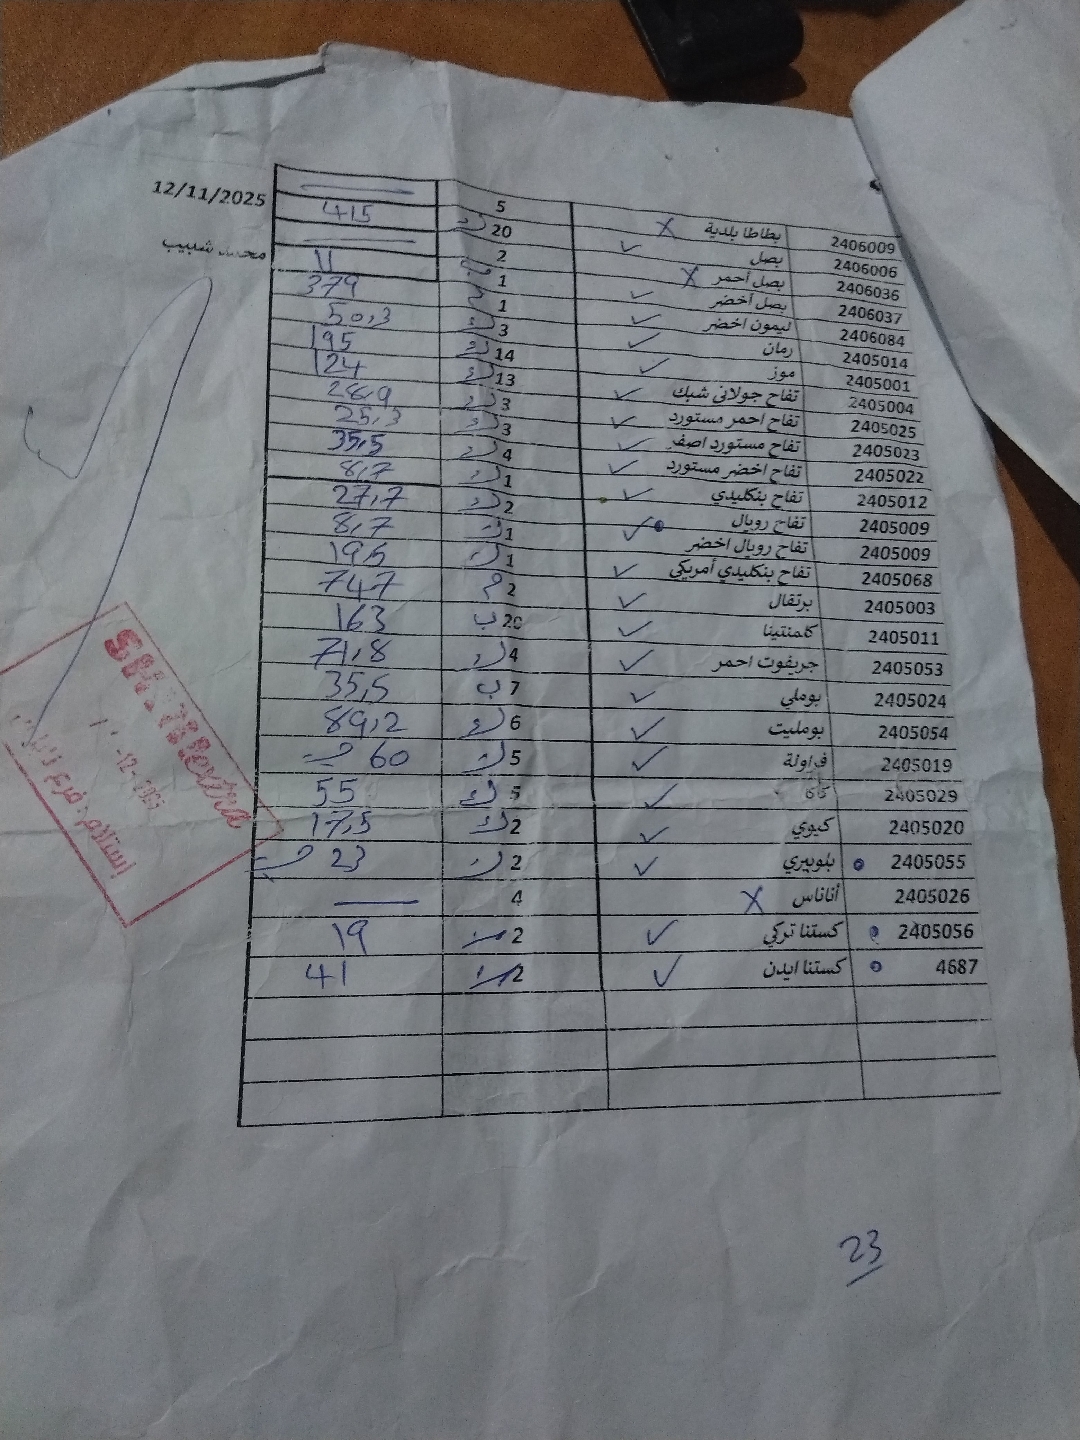 12/11/2025
محمد شلبيب
2406009 بطاطا بلدية X 5
2406006 بصل ✓ 20 415
2406036 بصل أحمر X 2
2406037 بصل أخضر ✓ 1 11
2406084 ليمون اخضر ✓ 1 379
2405014 رمان ✓ 3 50,3
2405001 موز ✓ 14 195
2405004 تفاح جولاني شبك ✓ 13 124
2405025 تفاح احمر مستورد ✓ 3 28,9
2405023 تفاح مستورد اصفر ✓ 3 25,3
2405022 تفاح اخضر مستورد ✓ 4 35,5
2405012 تفاح بنكليدي ✓ 1 8,7
2405009 تفاح رويال ✓ 2 27,7
2405009 تفاح رويال اخضر 1 8,7
2405068 تفاح بنكليدي أمريكي ✓ 1
2405003 برتقال ✓ 2 747
2405011 كلمنتينا ✓ ب 20 163
2405053 جريفوت احمر ✓ 4 71,8
2405024 بوملي ✓ ب 7 35,5
2405054 بومليت ✓ 6 89,2
2405019 فراولة ✓ 5 60
2405029 كاكا ✓ 5 55
2405020 كيوي ✓ 2 17,5
2405055 بلوبيري ✓ 2 23
2405026 أناناس X 4
2405056 كستنا تركي ✓ 2 19
4687 كستنا ايدن ✓ 2 41
استلام
23